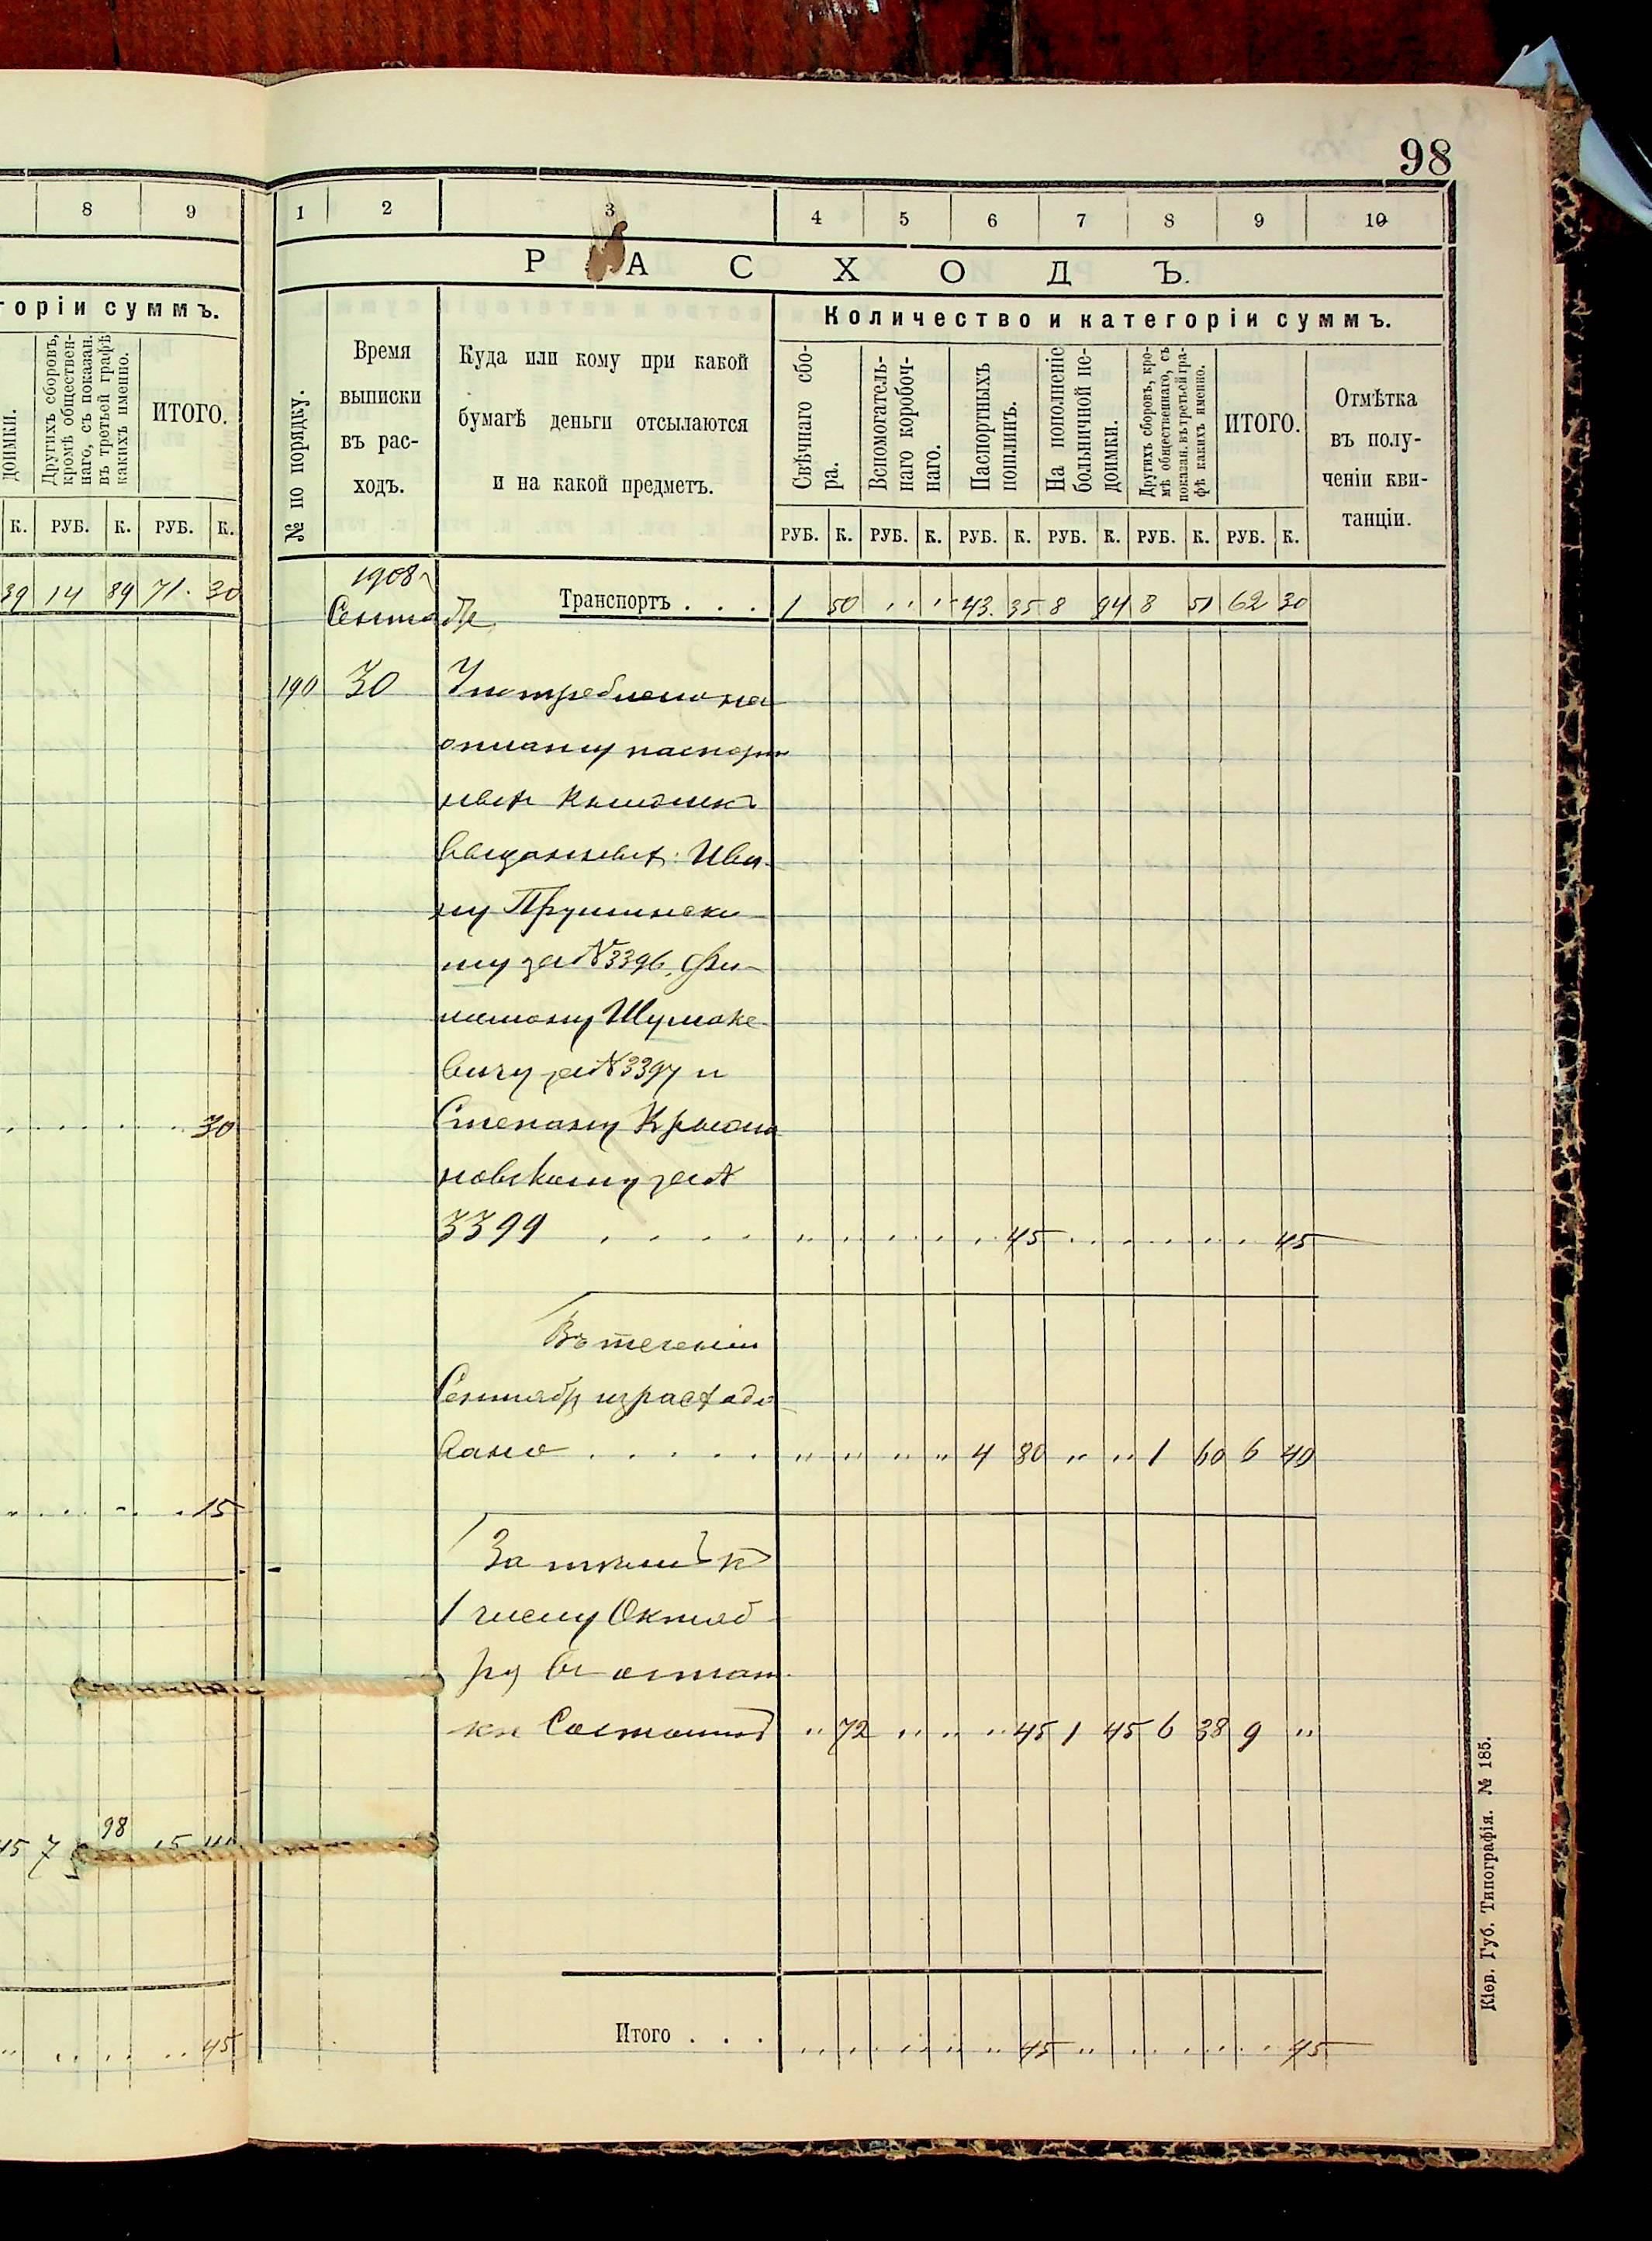 98
8 9
горіи суммъ.
доимки.
Другихъ сборовъ, кромѣ обществен-
наго, съ показан.
въ третьей графѣ
какихъ именно.
ИТОГО.
К. РУБ. К. РУБ. К.
39 14 89 71. 30
30
15
98
45 7
45
1 2 3 4 5 6 7 8 9 10
РАСХОДЪ.
№ по порядку.
Время
выписки
въ рас-
ходъ.
Куда или кому при какой
бумагѣ деньги отсылаются
и на какой предметъ.
Количество и категоріи суммъ.
Свѣчнаго сбо-
ра.
Вспомогатель-
наго коробоч-
наго.
Паспортныхъ
пошлинъ.
На пополненіе
больничной не-
доимки.
Другихъ сборовъ, кро-
мѣ общественнаго, съ
показан. въ третьей гра-
фѣ какихъ именно.
ИТОГО.
Отмѣтка
въ полу-
ченіи кви-
танціи.
РУБ. К. РУБ. К. РУБ. К. РУБ. К. РУБ. К. РУБ. К.
1908
Сентябр
Транспортъ . . . 1 50 " " 43. 35 8 94 8 51 62 30
190 30 Употреблено на
оплату паспорт
ныхъ книжекъ
выданныхъ: Ива-
ну
му за № 3396,
Шумаке-
вичу за № 3397 и
Степану
новскому за №
3399 . . . . 45 45
Въ теченіи
Сентябр израсходо-
вано . . . . . " " " " 4 80 " " 1 60 6 40
За тѣмъ къ
1 числу Октяб
ря въ остат
кѣ Состоитъ " 72 " " " 45 1 45 6 38 9 "
Итого . . . 45 45
Кіев. Губ. Типографія. № 185.